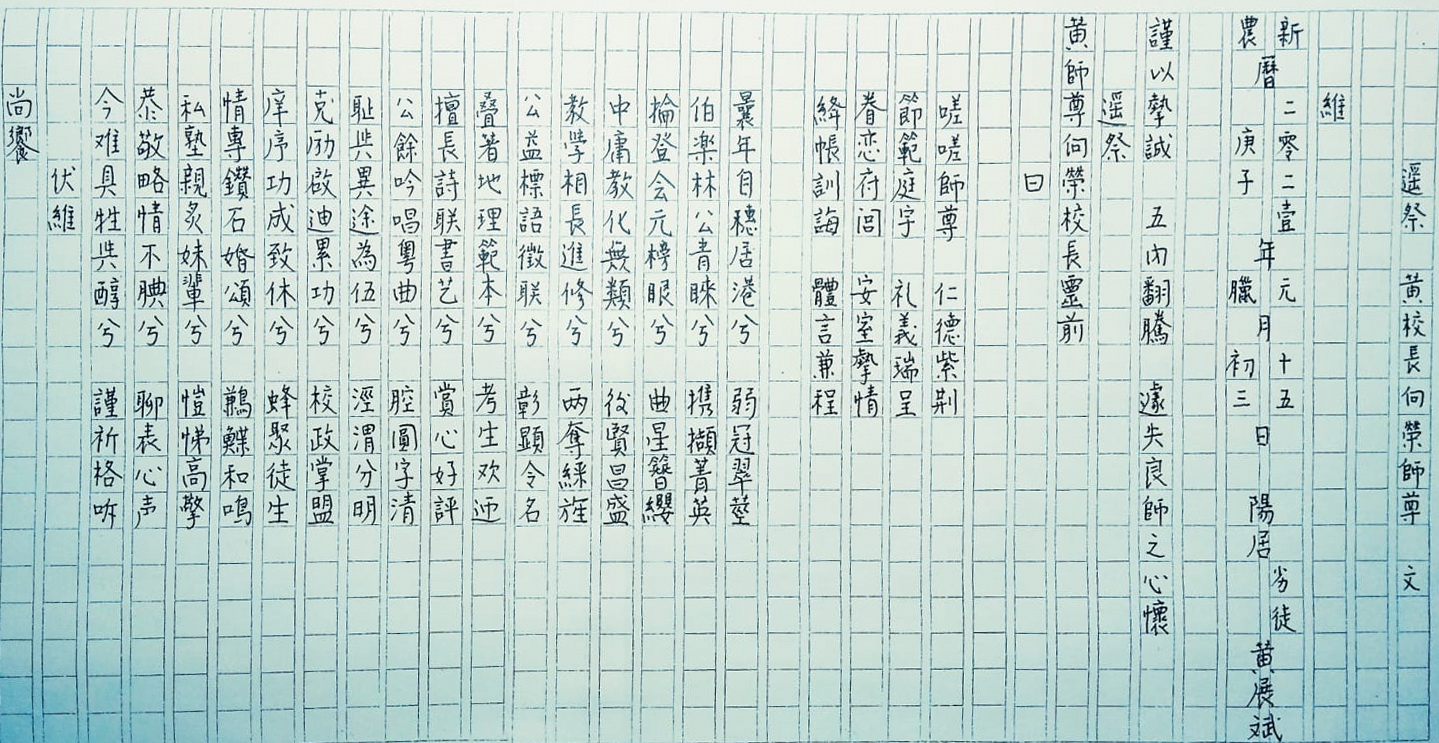 遥祭 黄校長向榮師尊 文
維
新農曆 二零二壹庚子年 元臘月 十五初三日 陽居劣徒 黄展斌
謹以摯誠 五內翻騰 遽失良師之心懷
遥祭
黄師尊向榮校長靈前
曰
嗟嗟師尊 仁德紫荆
節範庭宇 礼義瑞呈
眷恋府闾 安室摯情
絳帳訓誨 體言兼程
曩年自穗居港兮 弱冠翠莖
伯楽林公青睐兮 携擷菁英
掄登会元榜眼兮 曲星簪纓
中庸教化無類兮 後賢昌盛
教學相長進修兮 两奪綵旌
公益標語徵联兮 彰顯令名
疊著地理範本兮 考生欢迎
擅長詩联書艺兮 賞心好評
公餘吟唱粤曲兮 腔圓字清
耻與異途為伍兮 涇渭分明
克励啟迪累功兮 校政掌盟
庠序功成致休兮 蜂聚徒生
情專鑽石婚頌兮 鶼鰈和鳴
私塾親炙妹輩兮 愷悌高擎
恭敬略情不腆兮 聊表心声
今难具牲與醇兮 謹祈格吶
伏維
尚饗